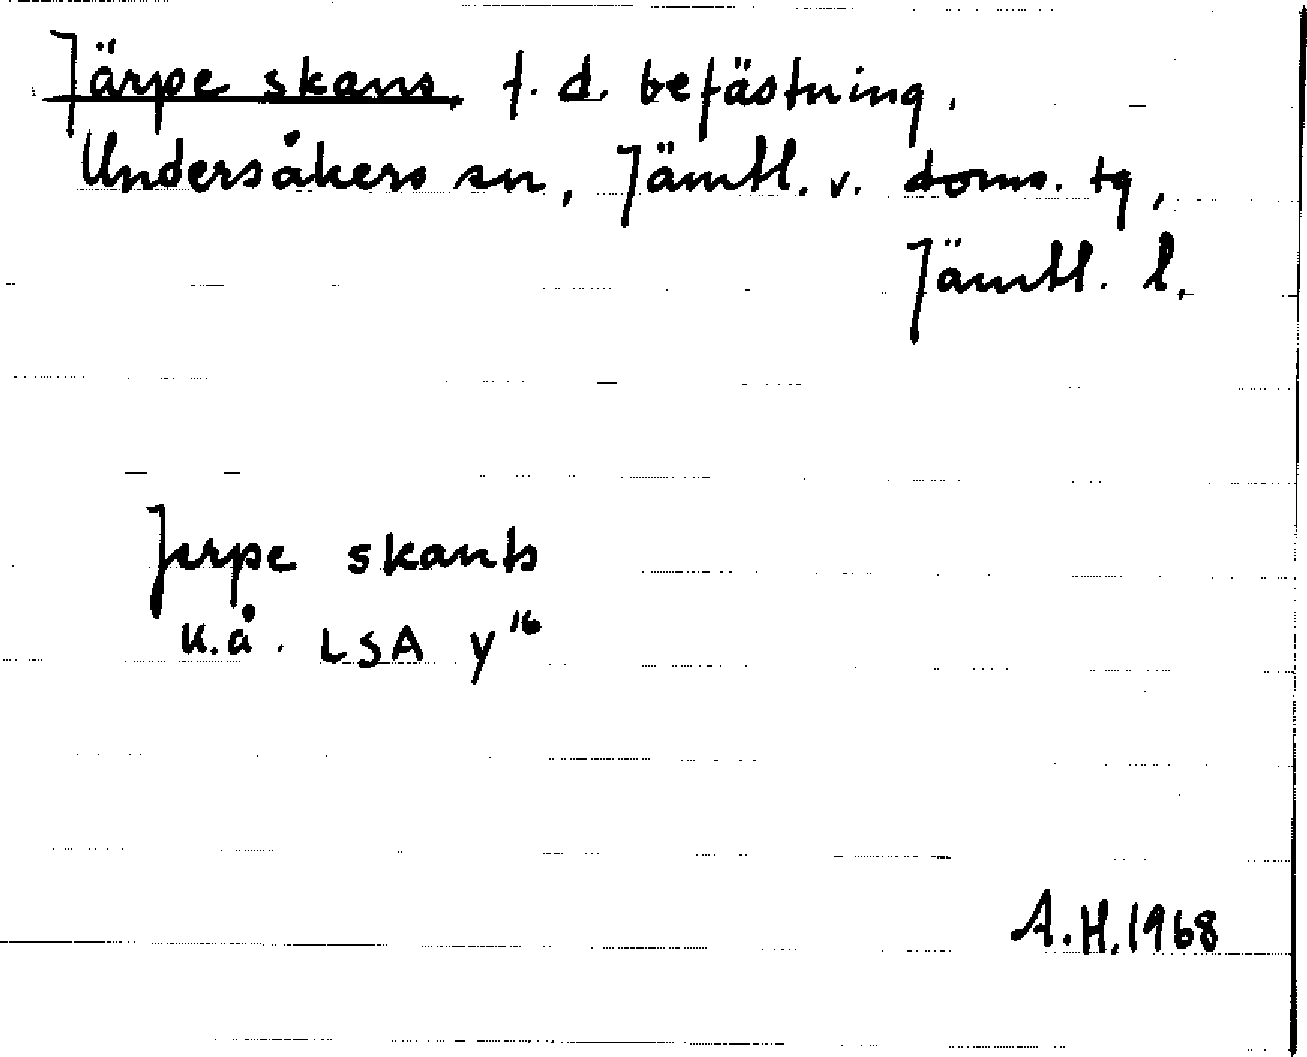 Järpe skans, f. d. befästning,
Undersåkers sn, Jämtl. v. doms. tg,
Jämtl. l.
Jerpe skants
u.å. LSA y¹⁶
A.H. 1968